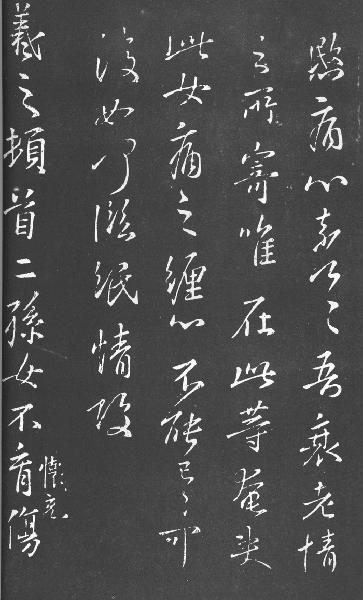 痛心奈何〻吾衰老情
之所寄唯在此等奄失
此女痛之纏心不能已〻可
復如何臨紙情酸
羲之頓首二孫女不育傷
懷充